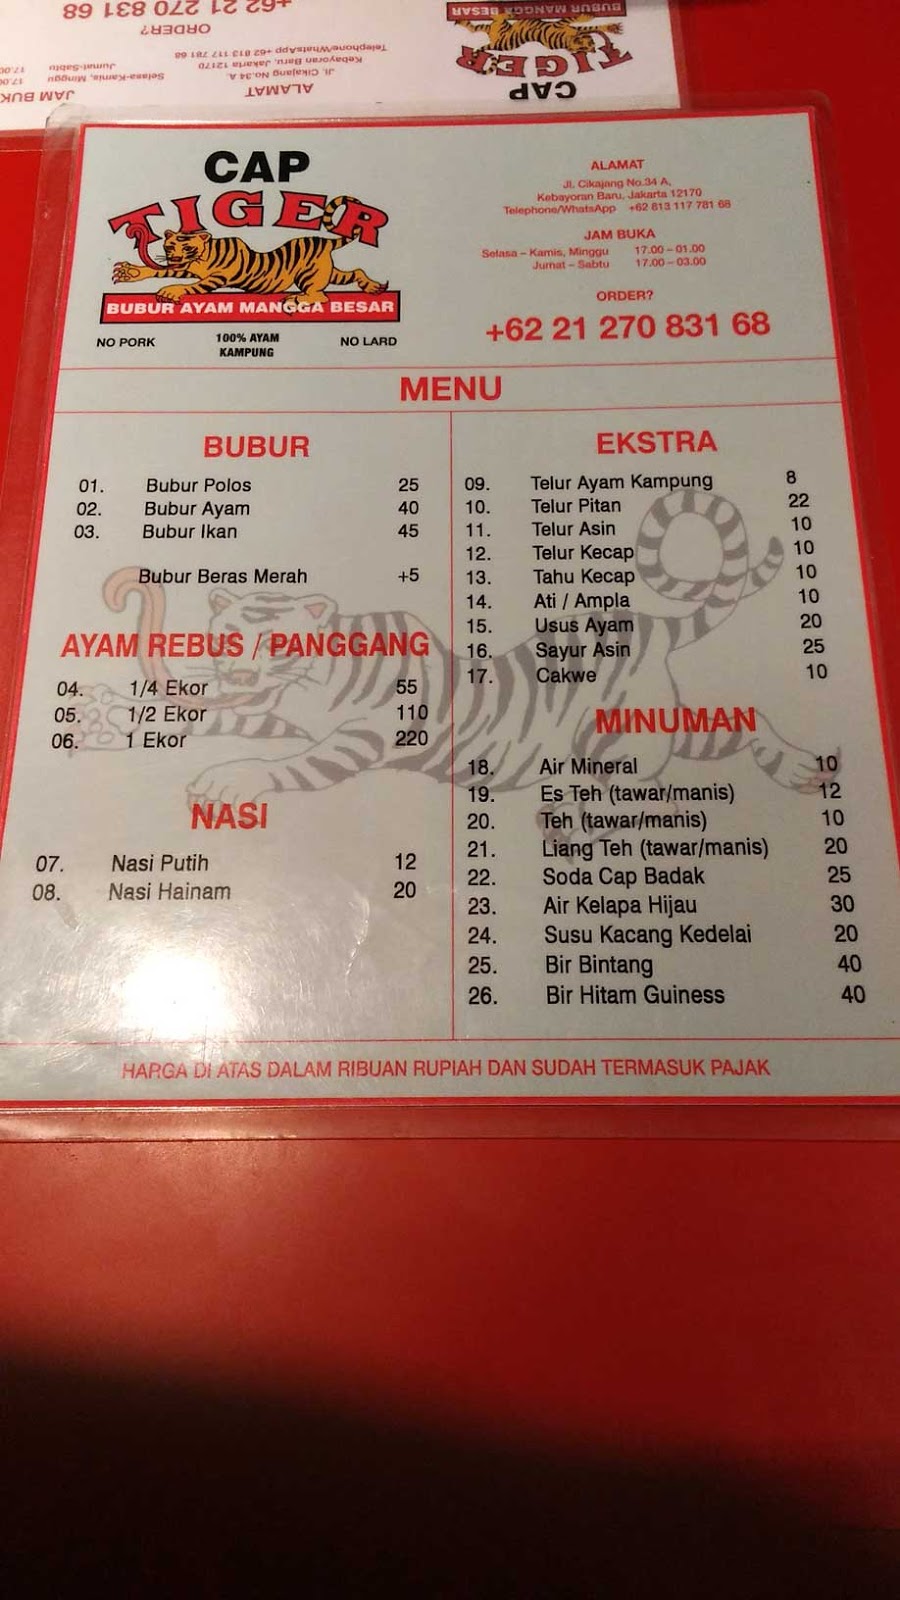 +62 21 270 831 68
ORDER?
Telephone/WhatsApp +62 813 117 781 68
Kebayoran Baru, Jakarta 12170
Jl. Cikajang No.34 A
ALAMAT
Jumat-Sabtu 17.00
Selasa-Kamis, Minggu 17.00
JAM BUK
BUBUR MANGGA BESAR
TIGER
CAP
CAP
TIGER
BUBUR AYAM MANGGA BESAR
NO PORK
100% AYAM
KAMPUNG
NO LARD
ALAMAT
Jl. Cikajang No.34 A,
Kebayoran Baru, Jakarta 12170
Telephone/WhatsApp +62 813 117 781 68
JAM BUKA
Selasa – Kamis, Minggu 17.00 – 01.00
Jumat – Sabtu 17.00 – 03.00
ORDER?
+62 21 270 831 68
MENU
BUBUR
01. Bubur Polos 25
02. Bubur Ayam 40
03. Bubur Ikan 45
Bubur Beras Merah +5
AYAM REBUS / PANGGANG
04. 1/4 Ekor 55
05. 1/2 Ekor 110
06. 1 Ekor 220
NASI
07. Nasi Putih 12
08. Nasi Hainam 20
EKSTRA
09. Telur Ayam Kampung 8
10. Telur Pitan 22
11. Telur Asin 10
12. Telur Kecap 10
13. Tahu Kecap 10
14. Ati / Ampla 10
15. Usus Ayam 20
16. Sayur Asin 25
17. Cakwe 10
MINUMAN
18. Air Mineral 10
19. Es Teh (tawar/manis) 12
20. Teh (tawar/manis) 10
21. Liang Teh (tawar/manis) 20
22. Soda Cap Badak 25
23. Air Kelapa Hijau 30
24. Susu Kacang Kedelai 20
25. Bir Bintang 40
26. Bir Hitam Guiness 40
HARGA DI ATAS DALAM RIBUAN RUPIAH DAN SUDAH TERMASUK PAJAK